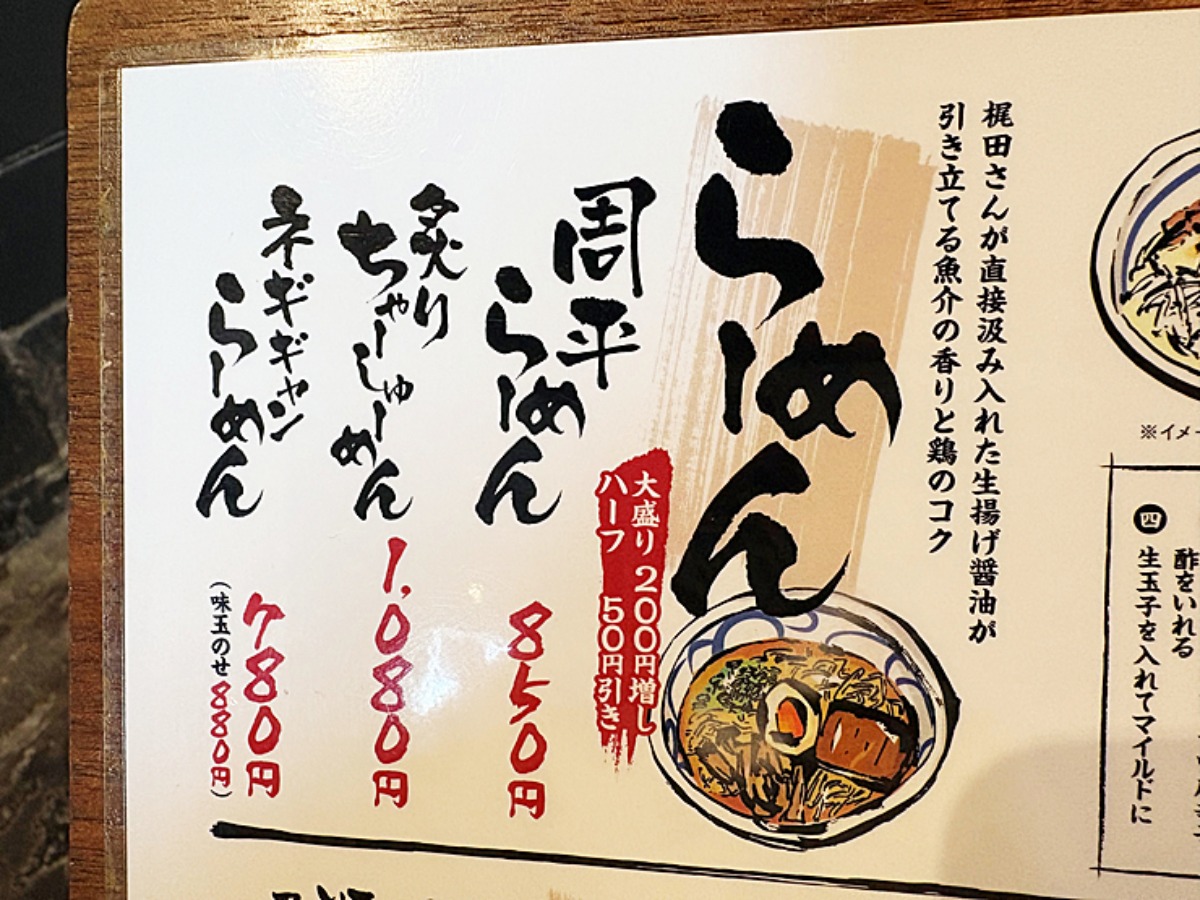 ※イメー
四
酢をいれる
生玉子を入れてマイルドに
梶田さんが直接汲み入れた生揚げ醤油が
引き立てる魚介の香りと鶏のコク
らーめん
大盛り 200円増し
ハーフ 50円引き
周平
らーめん
850円
炙り
ちゃーしゅーめん
1,080円
ネギギャン
らーめん
780円
(味玉のせ 880円)